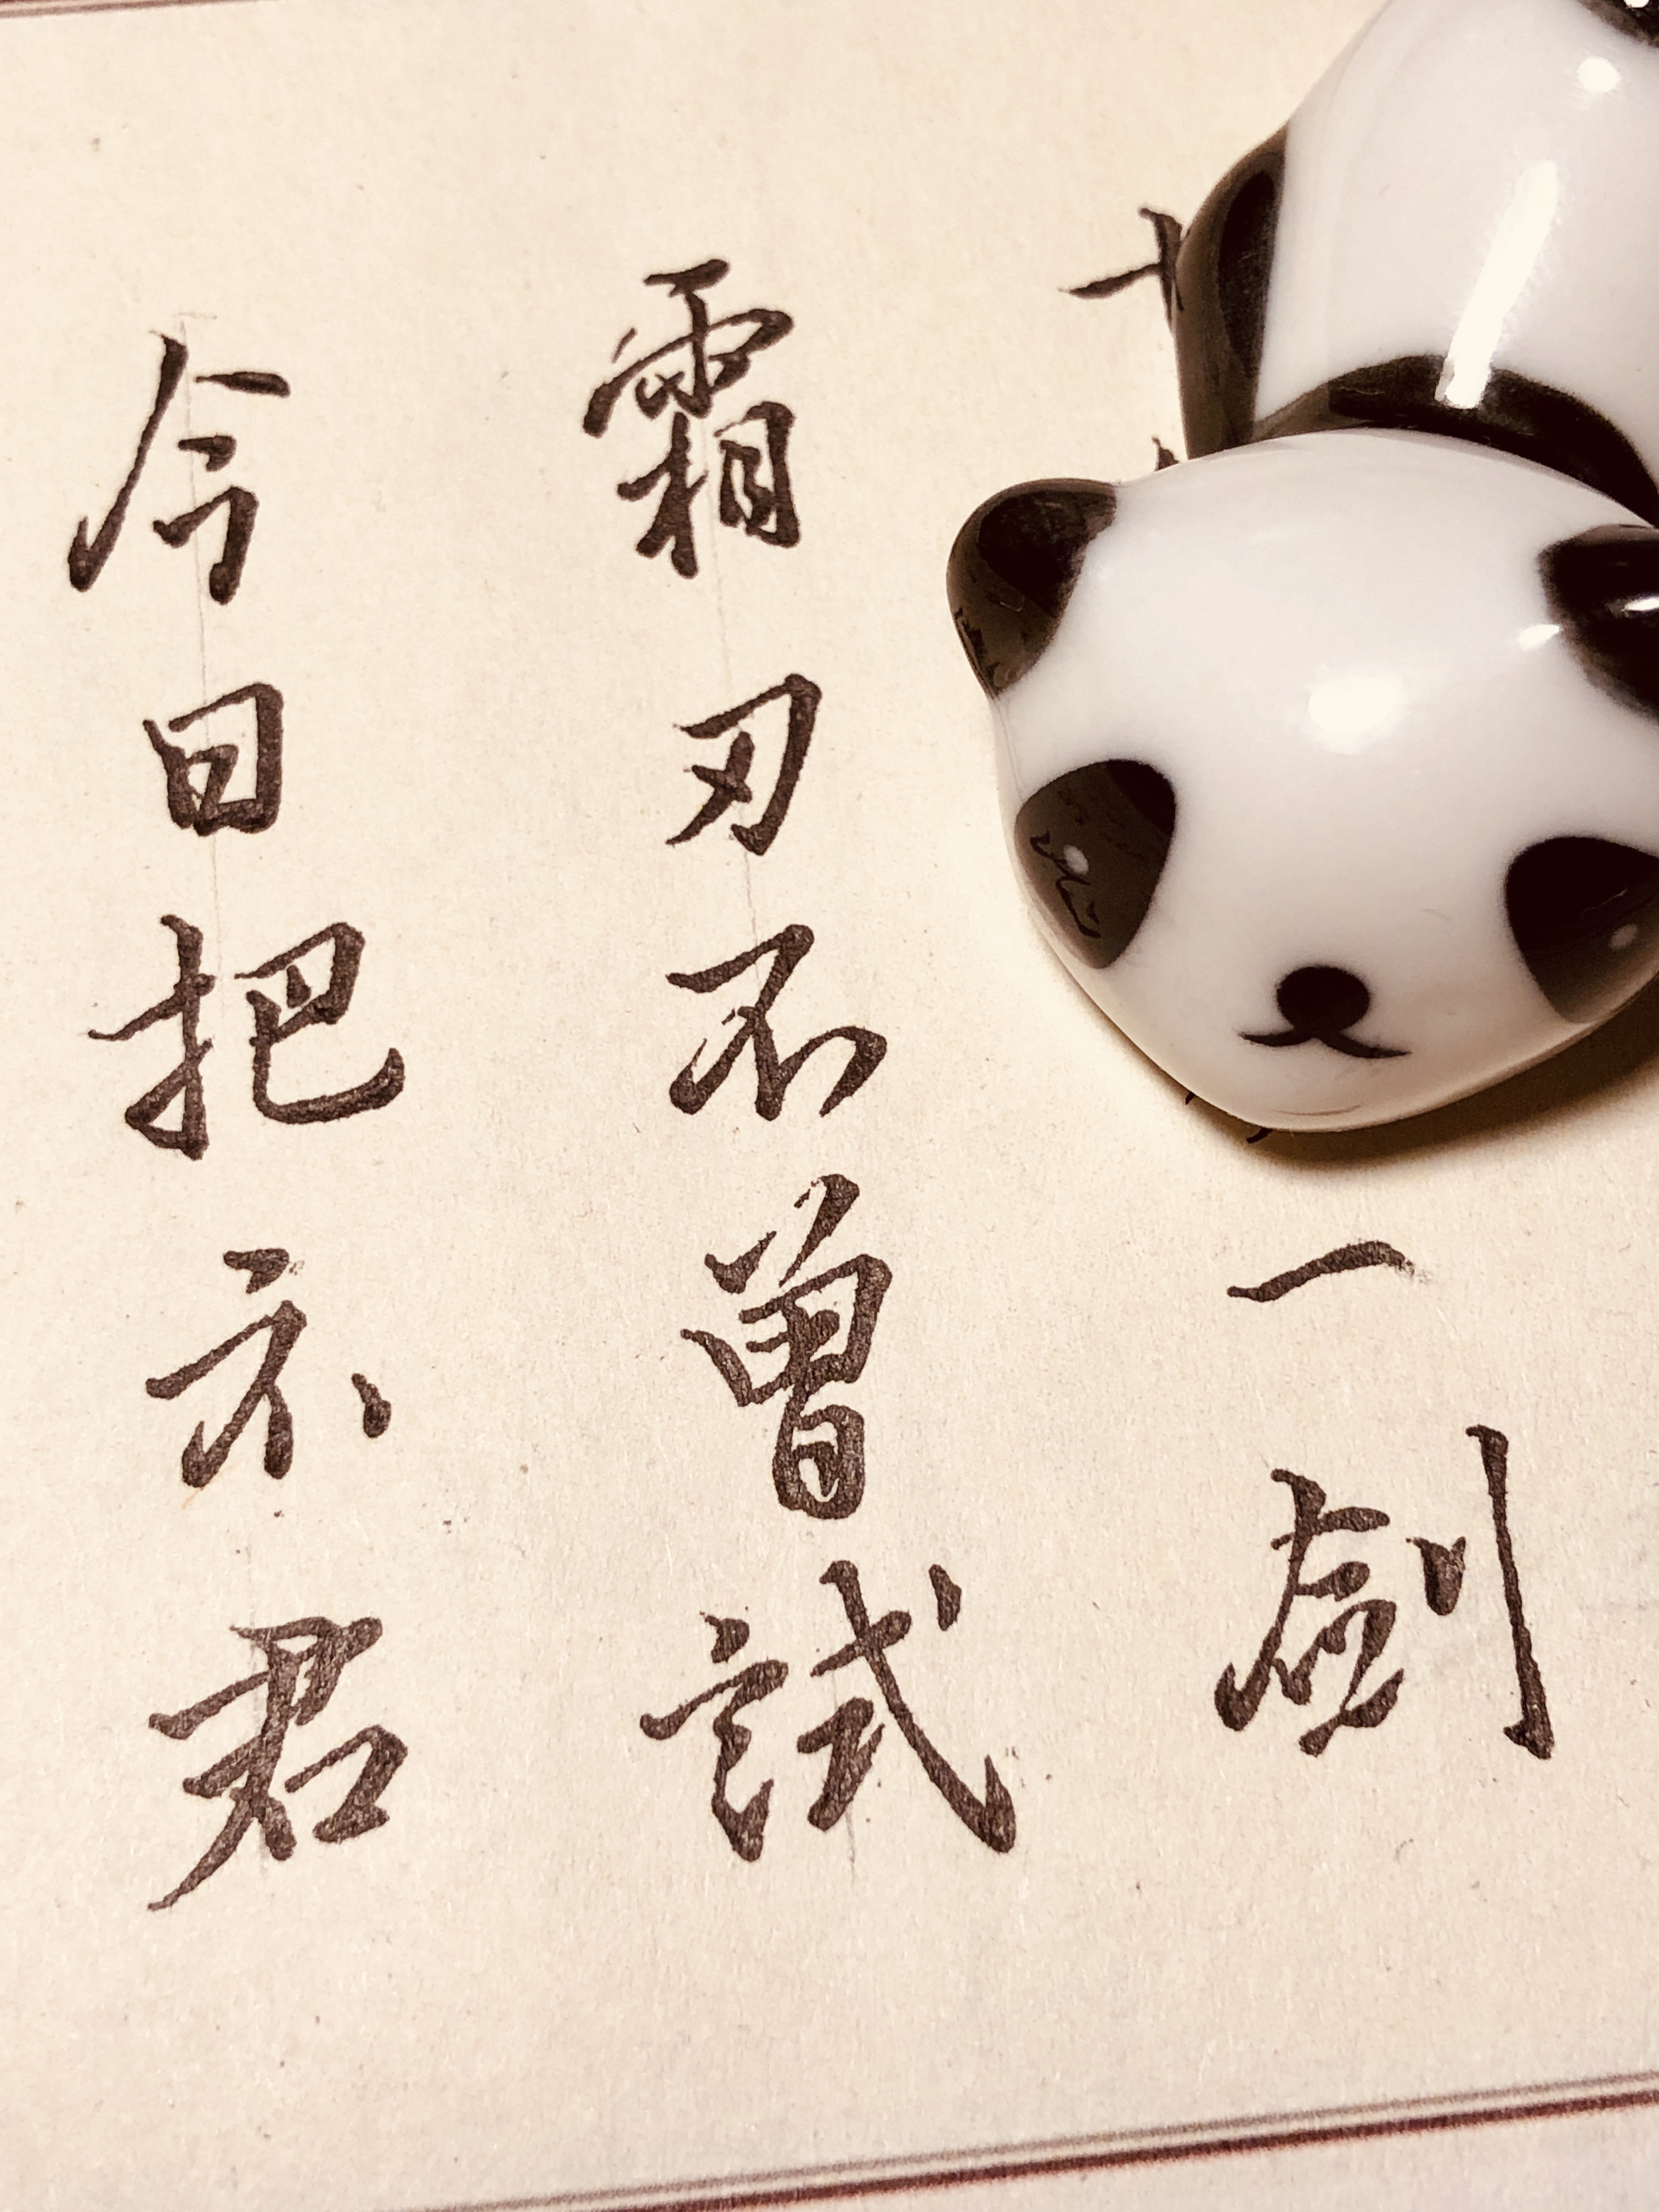 一劍
霜刃不曾試
今日把示君